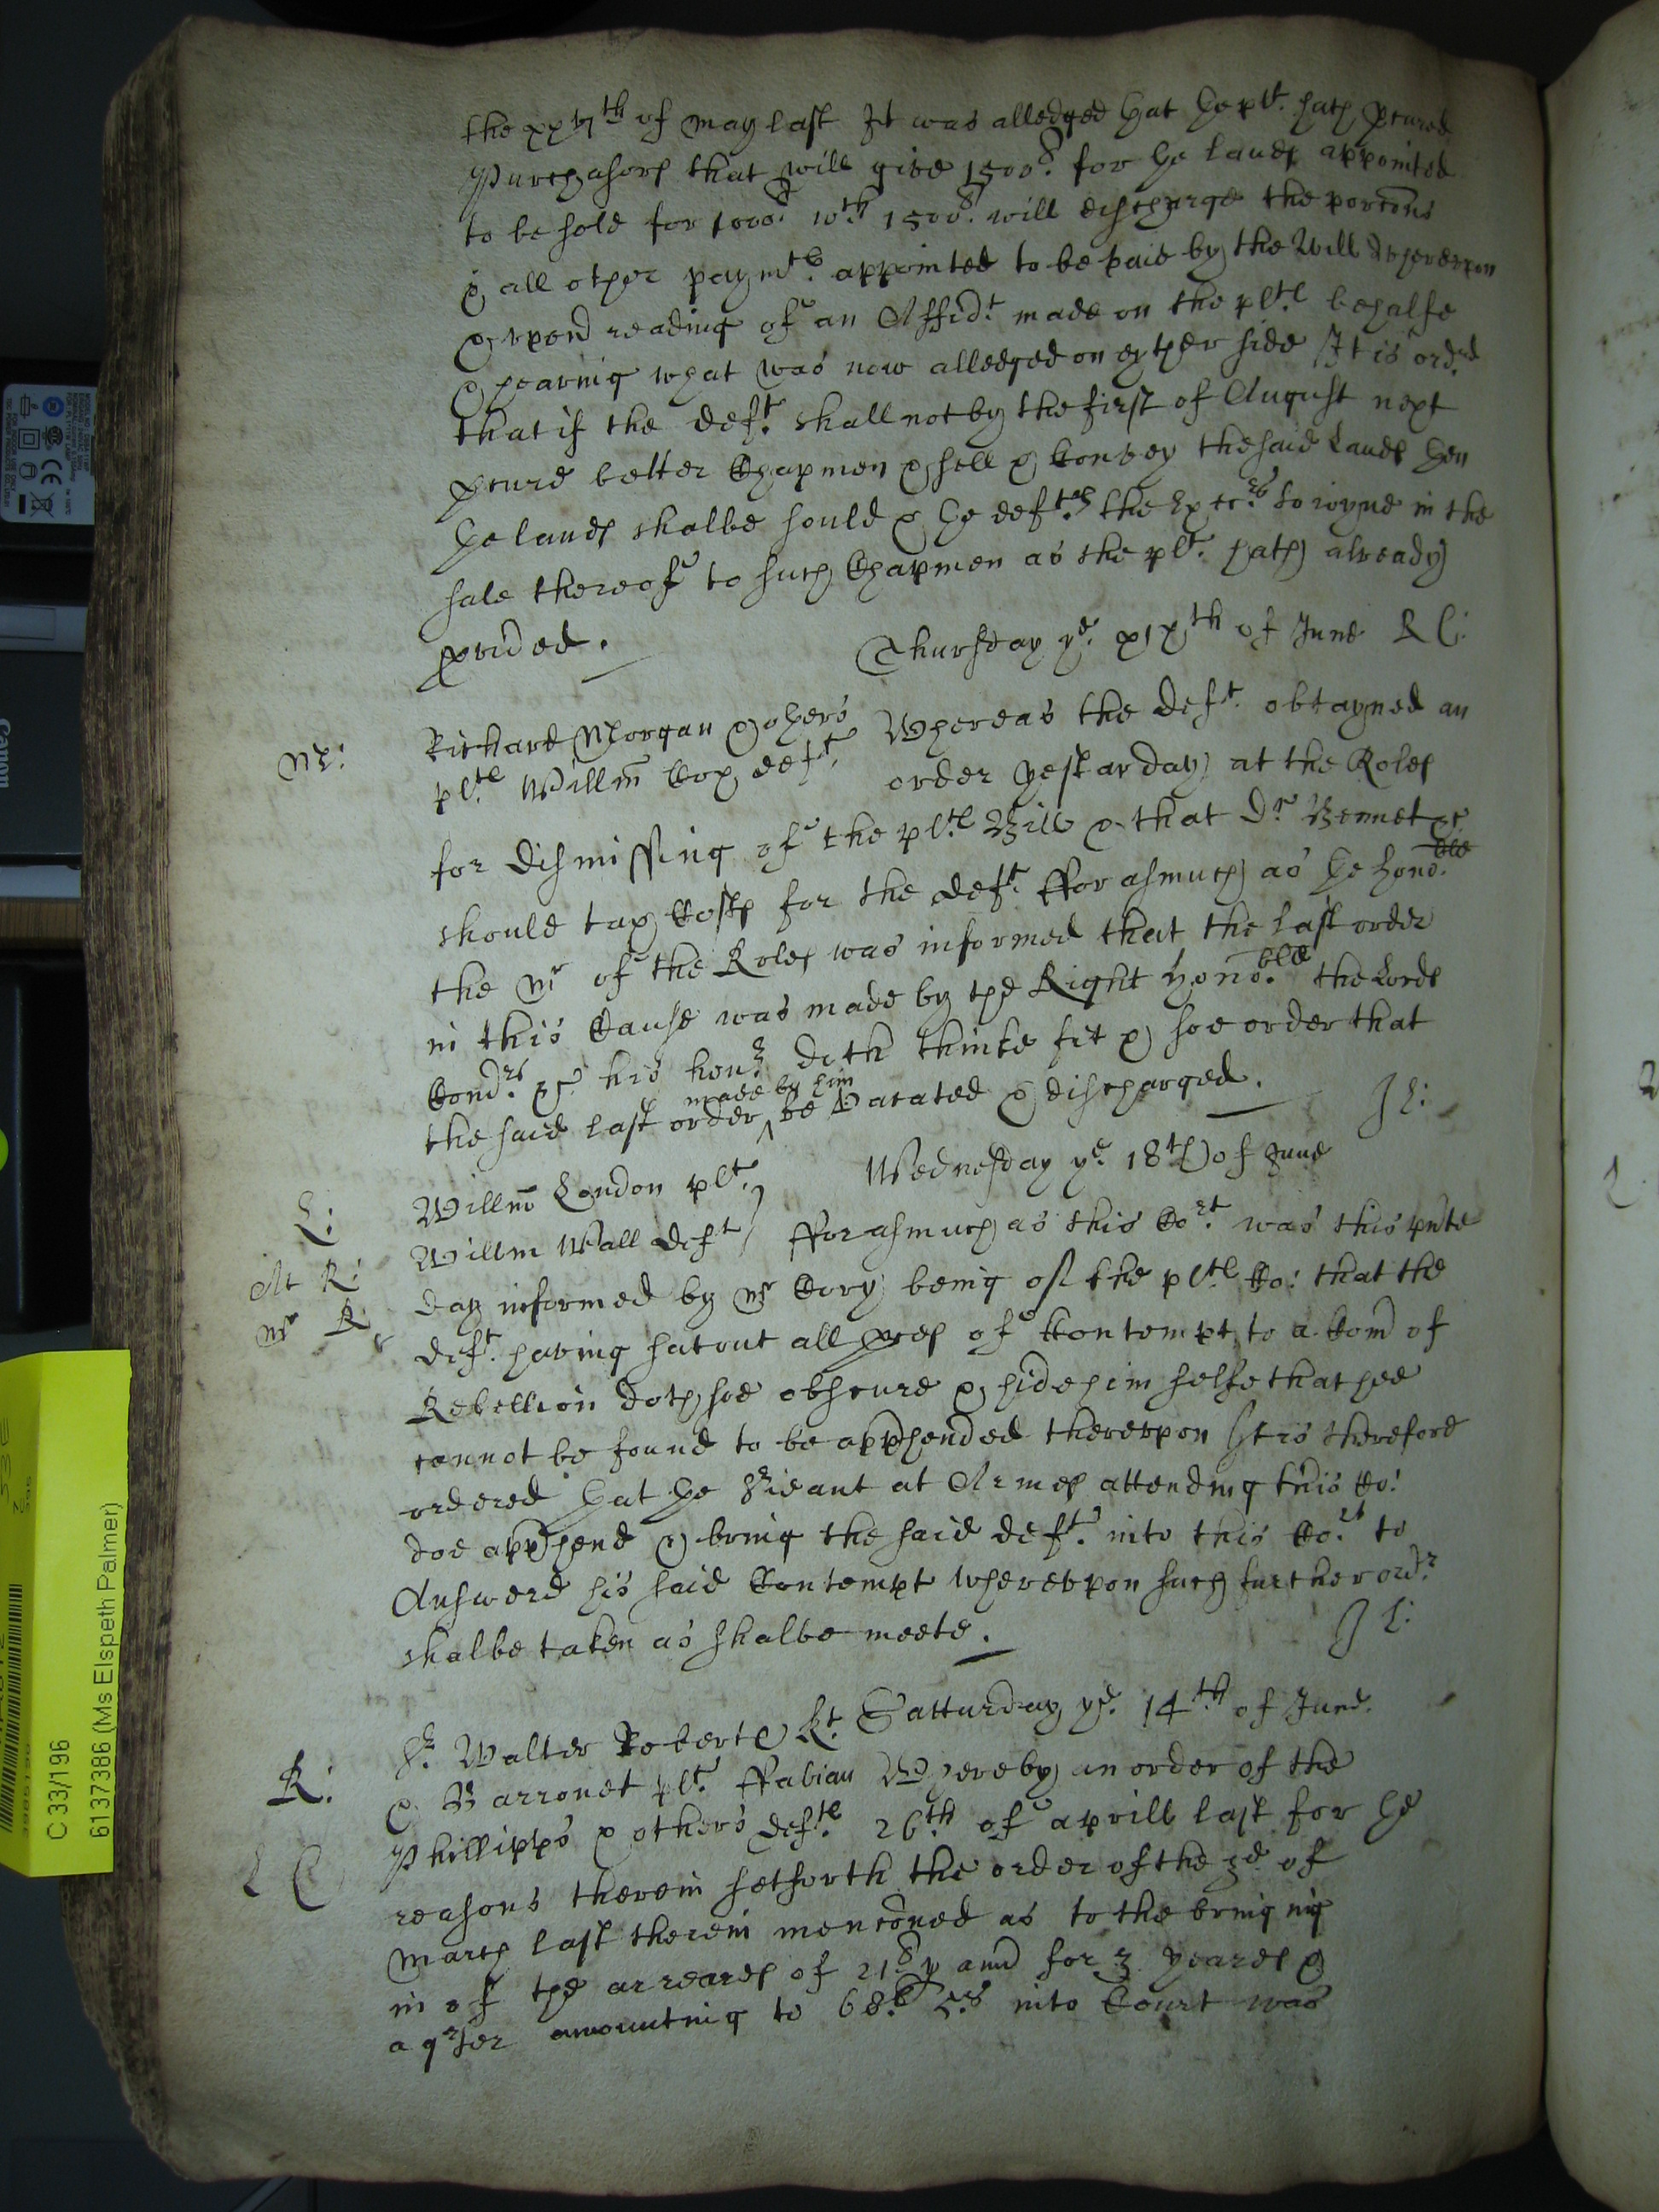 the xxvjth of may last It was alledged that the plt. hath pcured
Purchasors that will give 1500l. for the lands appointed
to be sold for 1000l. wch 1500l. will discharge the porcons
& all other paymts. appointed to be paid by the Will Whereupon
& upon reading of an Affidt. made on the pltes behalfe
& hearing what was now alledged on eyther side It is ordrd
that if the deft. shall not by the first of August next
pcure better Chapmen & sell & convey the said lands then
the lands shalbe sould & the defts. the Exec.rs to ioyne in the
sale thereof to such Chapmen as the plt. hath already
pvided.
Thursday ye. xixth of June R C:
Mr:
Richard Morgan & others
plts Willm Cox deft.
Whereas the deft. obtayned an
order yesterday at the Roles
for dismissing of the pltes Bill & that Dr Bennet &c
should tax Costs for the deft. fforasmuch as the hono.ble
the Mr of the Roles was informed that the last order
in this Cause was made by the Right hono.ble the Lords
Comd.rs &c his honr. doth thinke fit & soe order that
the said last order made by him be vacated & discharged.
J L:
L:
Willm London plt.
Willm Wall deft
Wednesday ye. 18th of June
At R:
Mr R
fforasmuch as this Co.rt was this pnte
day informed by Mr Cory being of the pltes Co: that the
deft. having satout all pces of Contempt to a Com of
Rebellion doth soe obscure & hide him selfe that hee
cannot be found to be apphended thereupon It is therefore
ordered that the Sieant at Armes attending this Co:
doe apphend & bring the said deft. into this Co.rt to
Answere his said Contempt whereupon such further ord.r
shalbe taken as shalbe meete.
J L:
R:
Sr. Walter Roberts Kt.
& Barronet plt. ffabian
Phillipps & others defts.
Satturday ye. 14th of June.
L C
Whereby an order of the
26th of aprill last for the
reasons therein setforth the order of the 3d of
march last therein menconed as to the bringing
in of the arreares of 21l p ann for 3 yeares &
a qrter amounting to 68l. 5s into Court was
C 33/196
6137386 (Ms Elspeth Palmer)
Canon